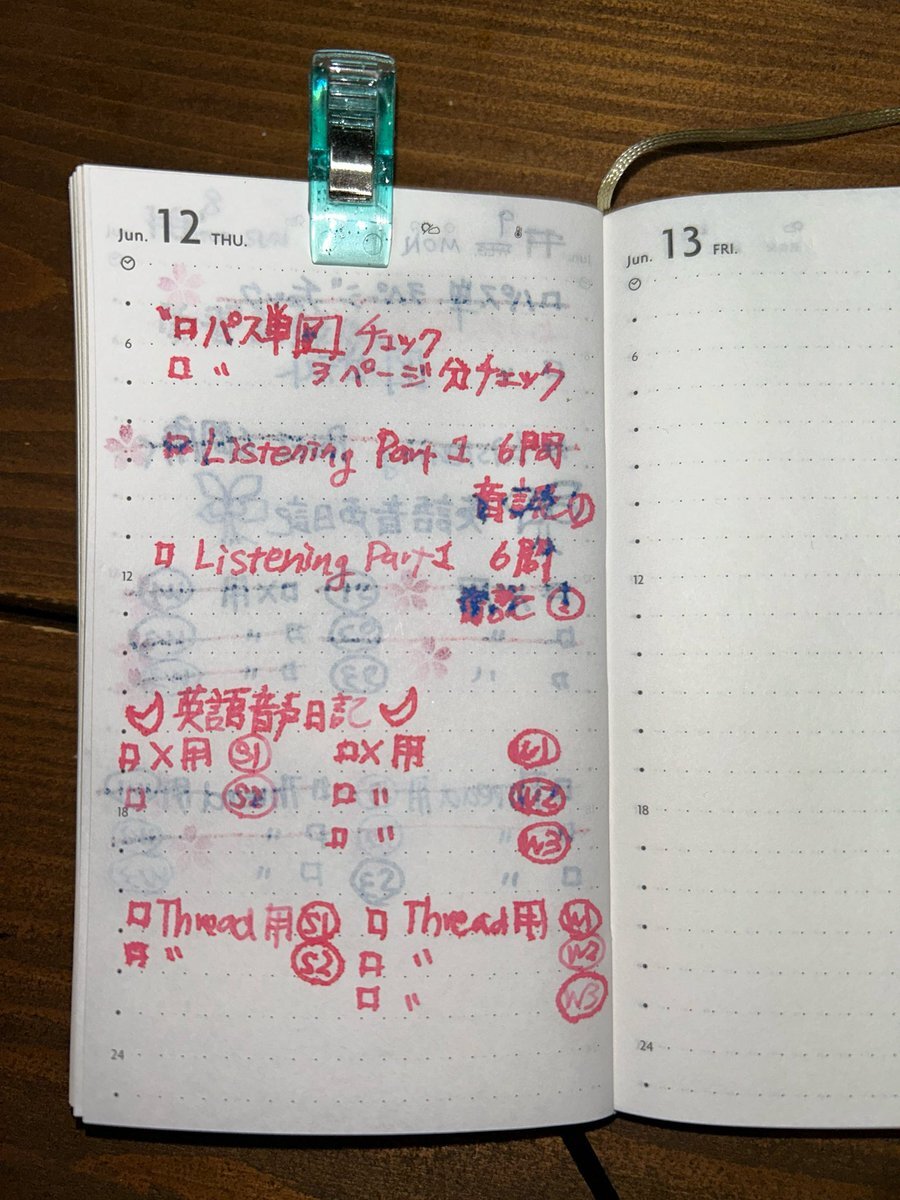 Jun. 12 THU.
6
□パス単 チェック
□ 〃 3ページ分チェック
□ Listening Part 1 6問
音読
□ Listening Part 1 6問
12
音読 ①
英語音声日記
□X用 S1 □X用 W1
□ S2 □ 〃 W2
18
□ 〃 W3
□Thread用 S1 □ Thread用 W1
□ 〃 S2 □ 〃 W2
□ 〃 W3
24
Jun. 13 FRI.
6
12
18
24